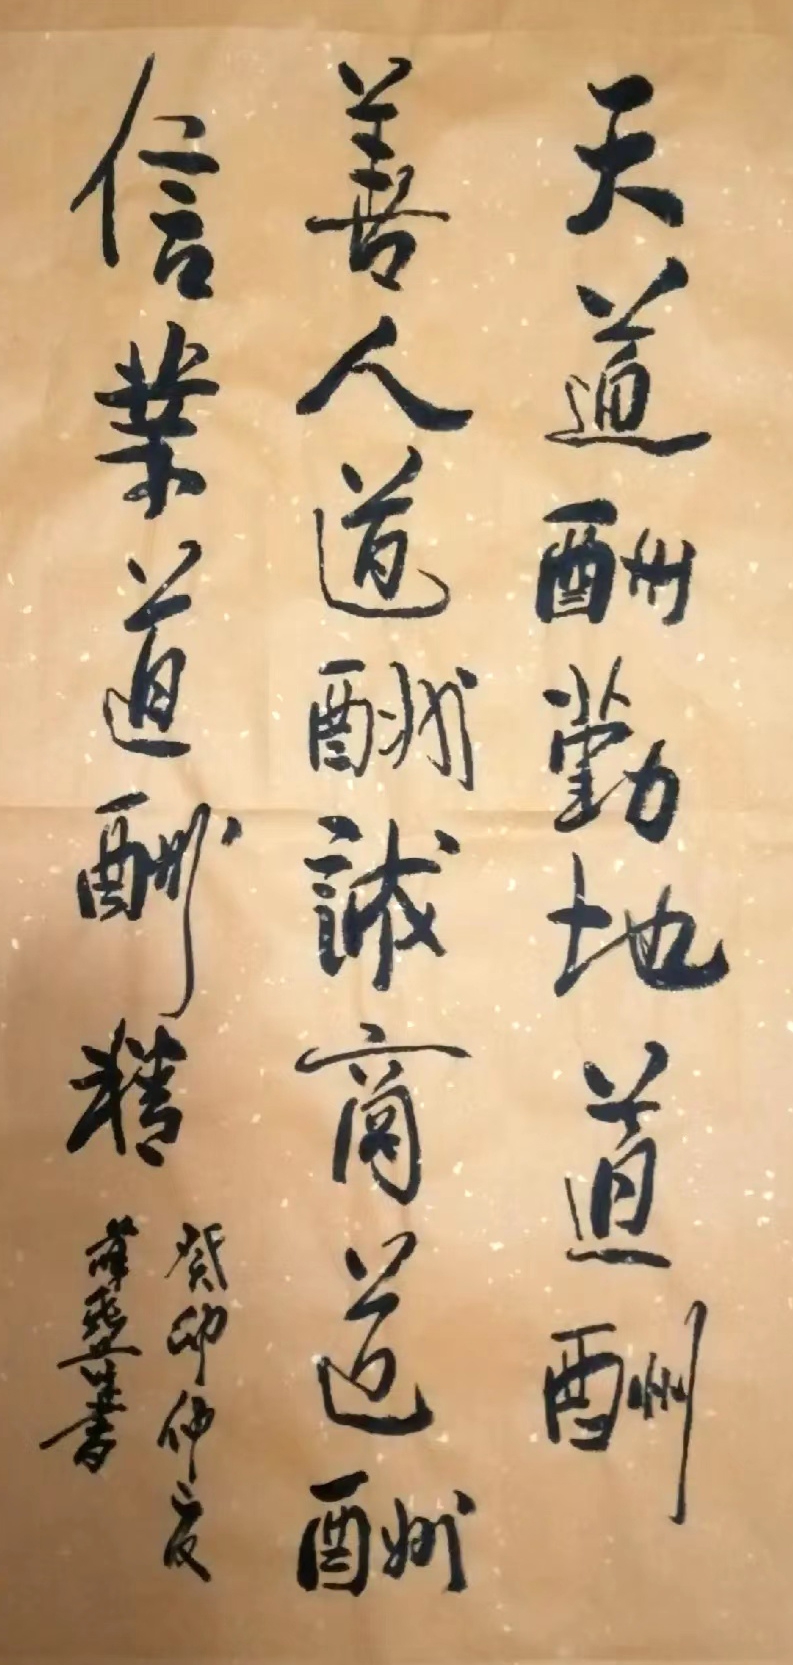 天道酬勤地道酬
善人道酬誠商道酬
信業道酬精
癸卯仲夏
書